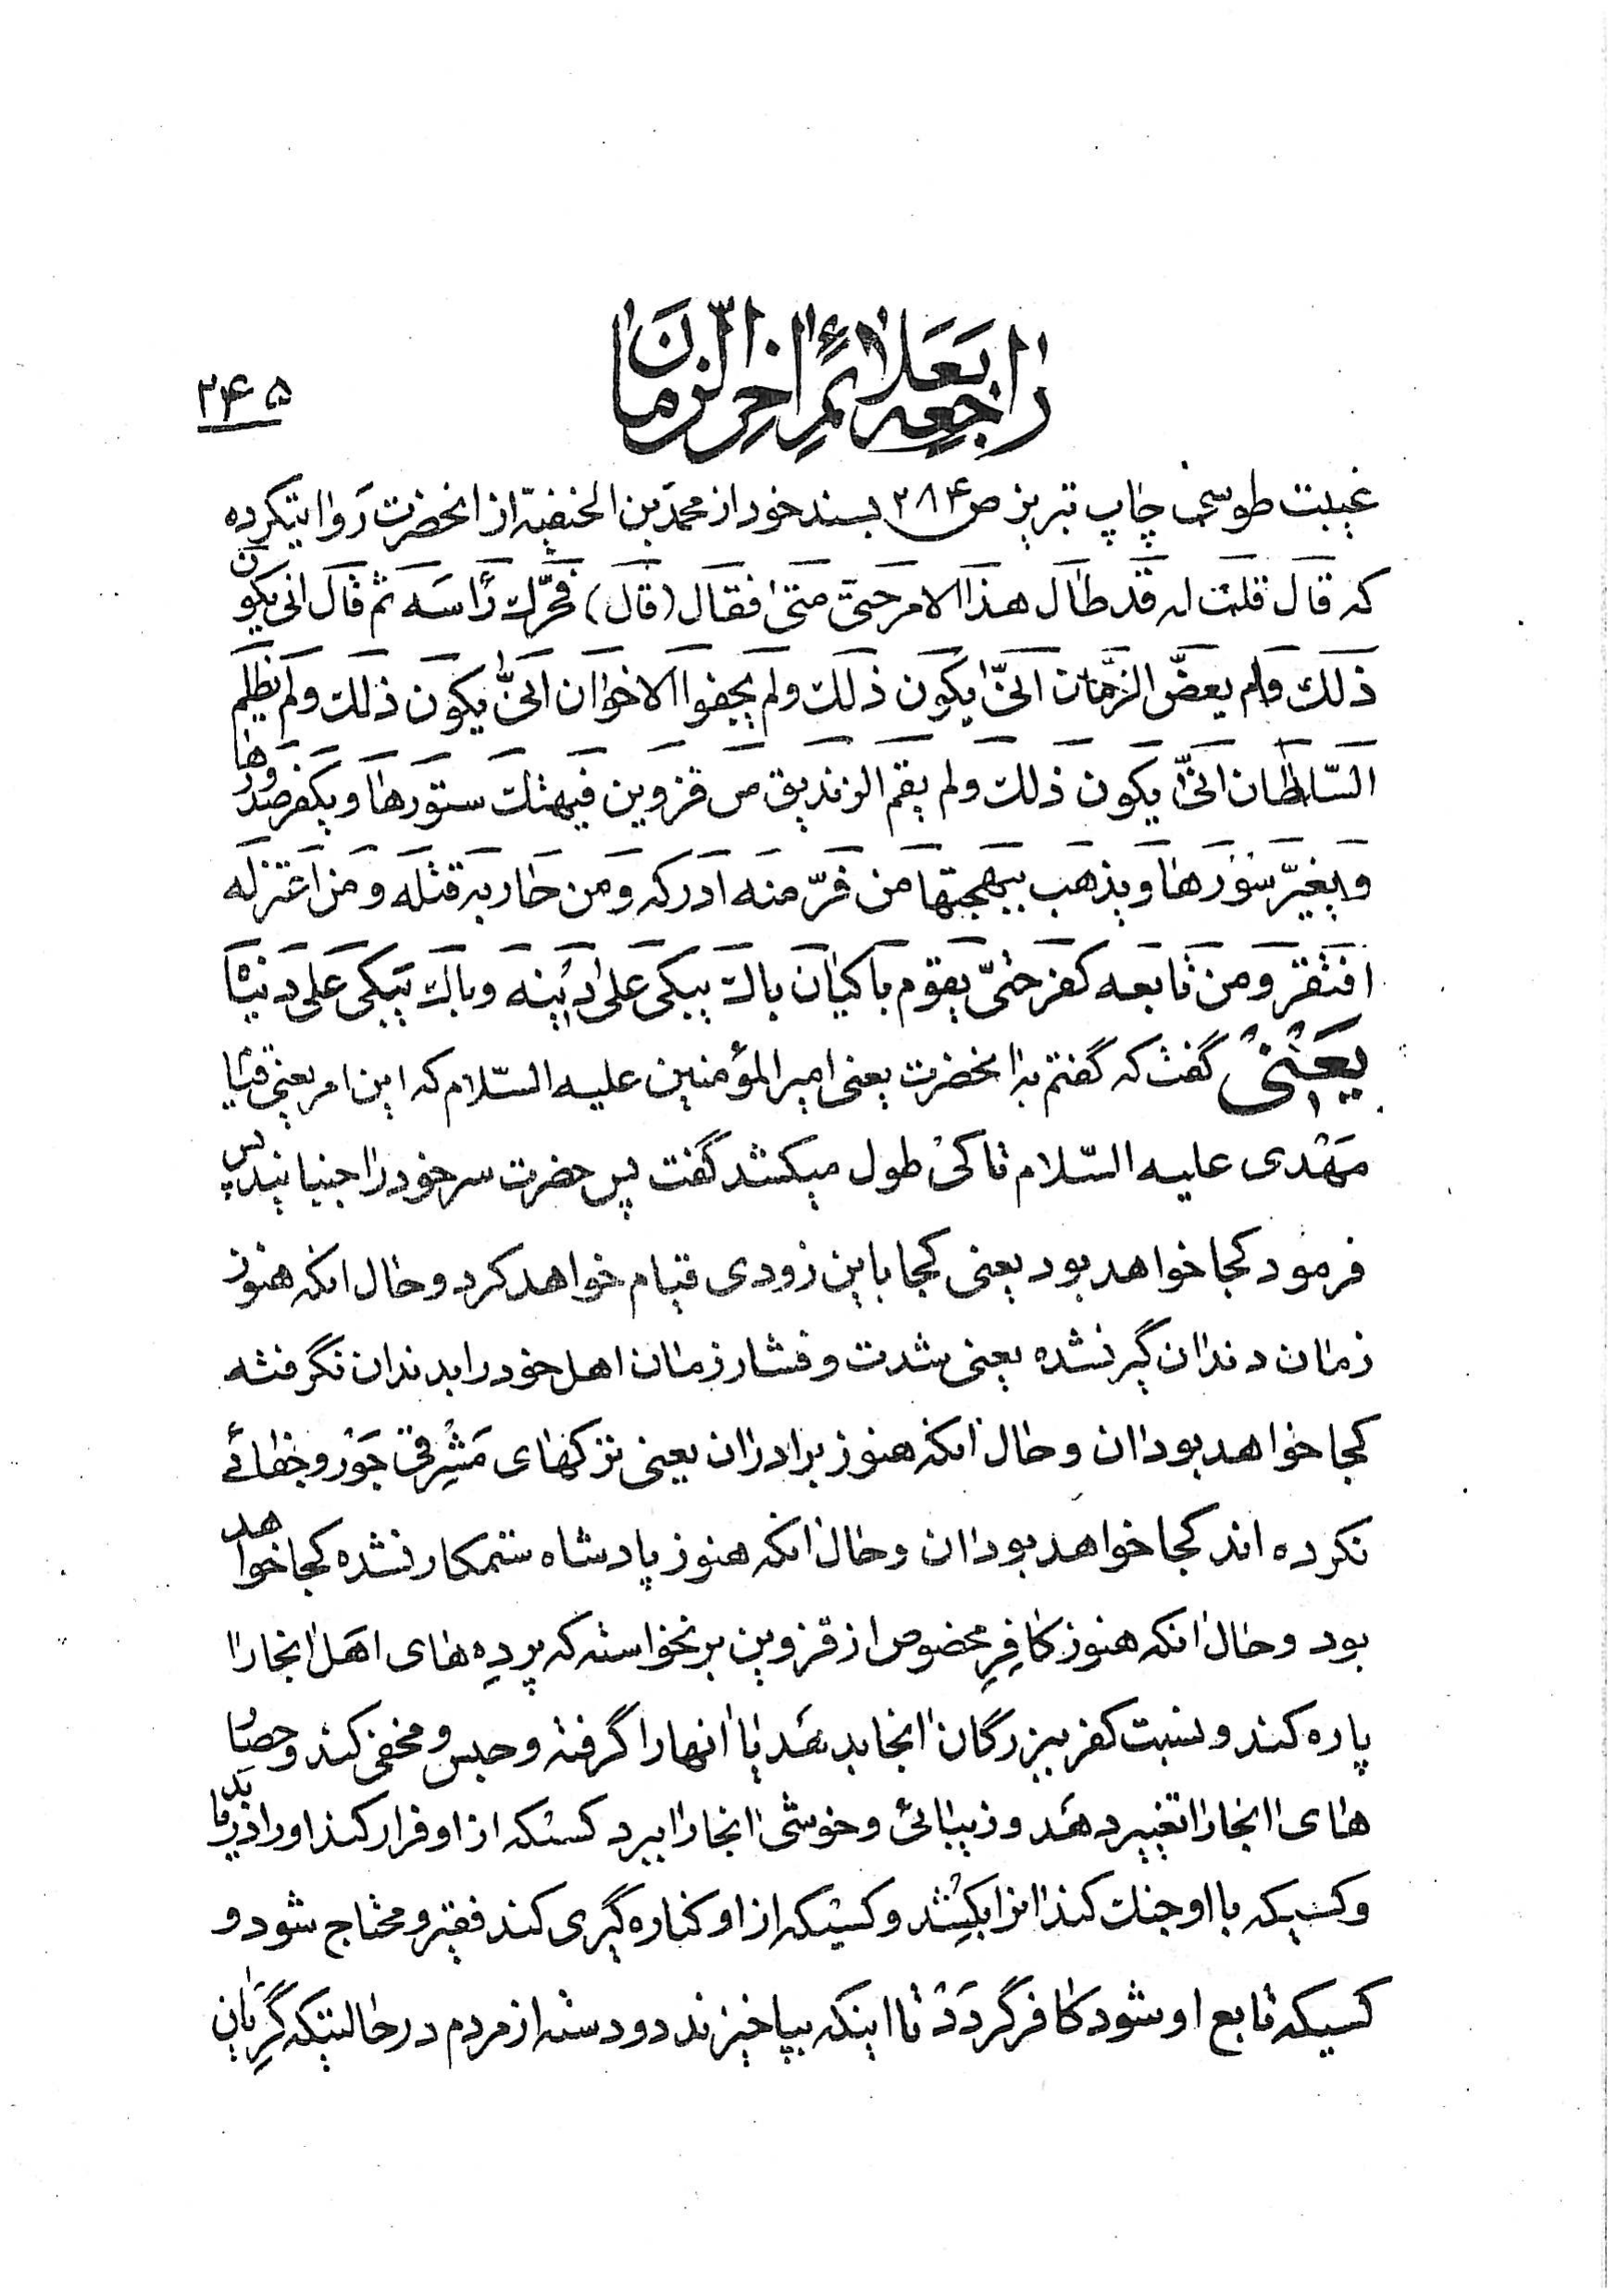 راجعه بعلائم اخر الزمان
۲۴۵
غیبت طوسی چاپ تبریز ص ۲۸۴ بسند خود از محمد بن الحنفیّة از انحضرت روایتکرده
که قال قلت له قد طال هذا الامر حتی متی فقال (قال) فحرّك رأسه ثم قال انی یکون
ذلك ولم یعضّ الزّمان انّی یکون ذلك ولم یجفوا الاخوان انّی یکون ذلك ولم یظلم
السّلطان انّی یکون ذلك ولم یقم الزندیق من قزوین فیهتك ستورها ویکفر صدورها
ویغیّر سورها ویذهب ببهجتها من فرّ منه ادرکه ومن حاربه قتله ومن اعتزله
افتقر ومن تابعه کفر حتّی یقوم باکیان باك یبکی علی دینه وباك یبکی علی دنیا
یعنی گفت که گفتم به انحضرت یعنی امیر المؤمنین علیه السّلام که این امر یعنی قیا
مهدی علیه السّلام تا کی طول میکشد گفت پس حضرت سر خود را جنبانید پس
فرمود کجا خواهد بود یعنی کجا باین زودی قیام خواهد کرد و حال انکه هنوز
زمان دندان گیر نشده یعنی شدت و فشار زمان اهل خود را بدندان نگرفته
کجا خواهد بود ان و حال انکه هنوز برادران یعنی ترکهای مشرقی جور و جفائے
نکرده اند کجا خواهد بود ان و حال انکه هنوز پادشاه ستمکار نشده کجا خواهد
بود و حال انکه هنوز کافِرِ مخصوص از قزوین برنخواسته که پردِه های اهل انجا را
پاره کند و نسبت کفر ببزرگان انجا بدهد یا انها را گرفته و حبس و مخفی کند و حصا
های انجا را تغییر دهد و زیبائی و خوشی انجا را ببرد کسیکه از او فرار کند او را دریابد
و کسیکه با او جنك کند انرا بکشد و کسیکه از او کناره گیری کند فقیر و محتاج شود و
کسیکه تابع او شود کافر گردد تا اینکه بپا خیزند دو دسته از مردم در حالتیکه گریان